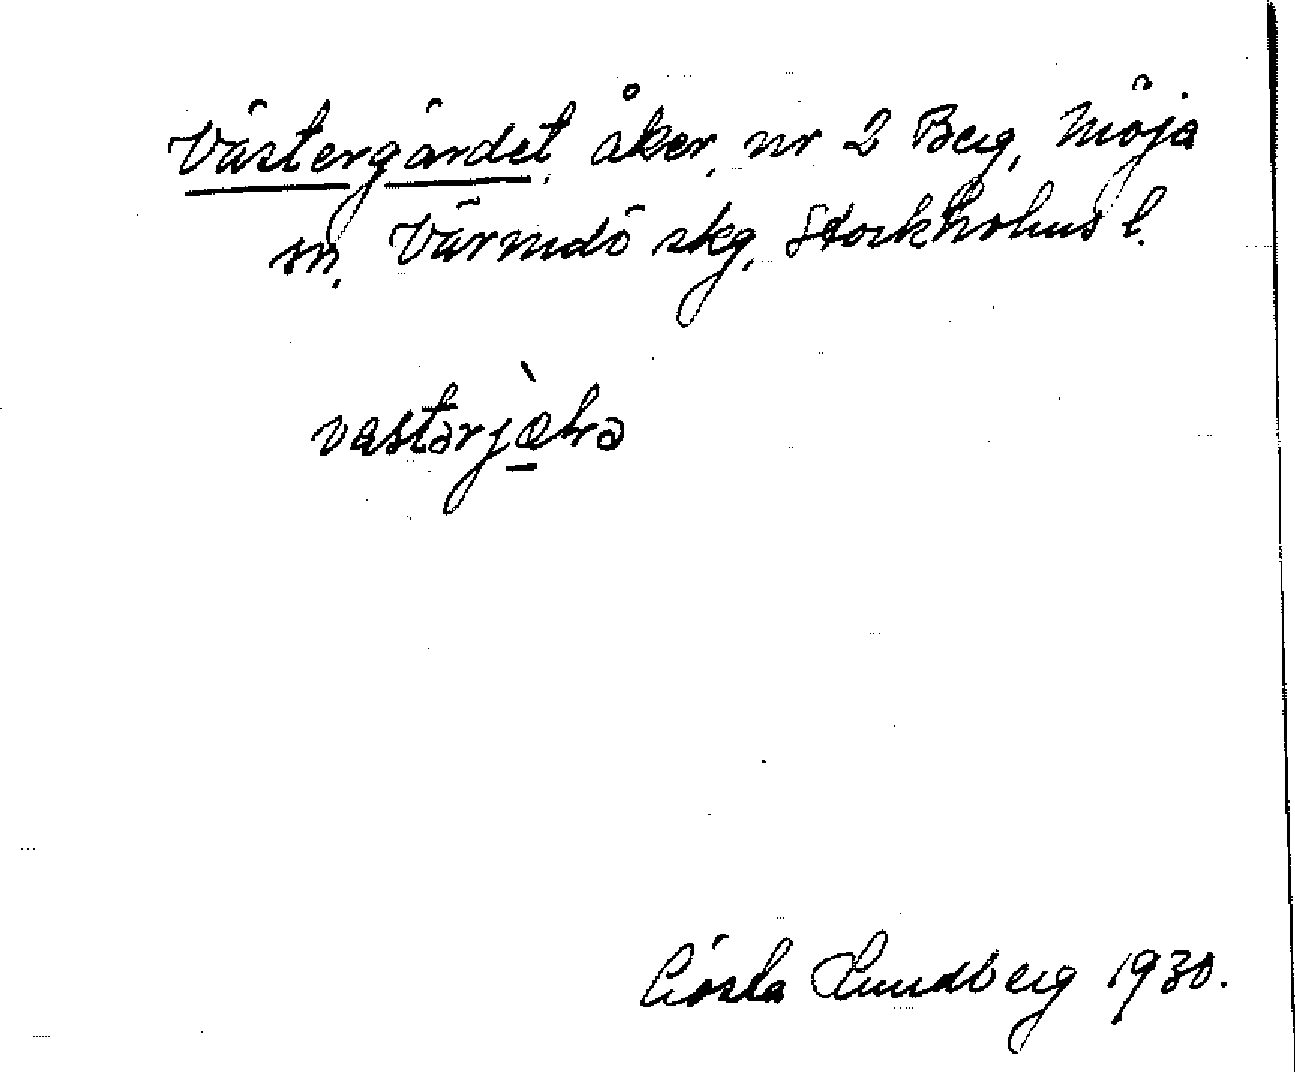 Västergärdet, åker, nr 2 Berg, Möja
sn, Värmdö skg, Stockholms l.
västərjæ̀lrə
Gösta Lundberg 1930.